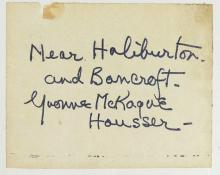 Near Haliburton.
and Bancroft.
Yvonne McKague
Housser –